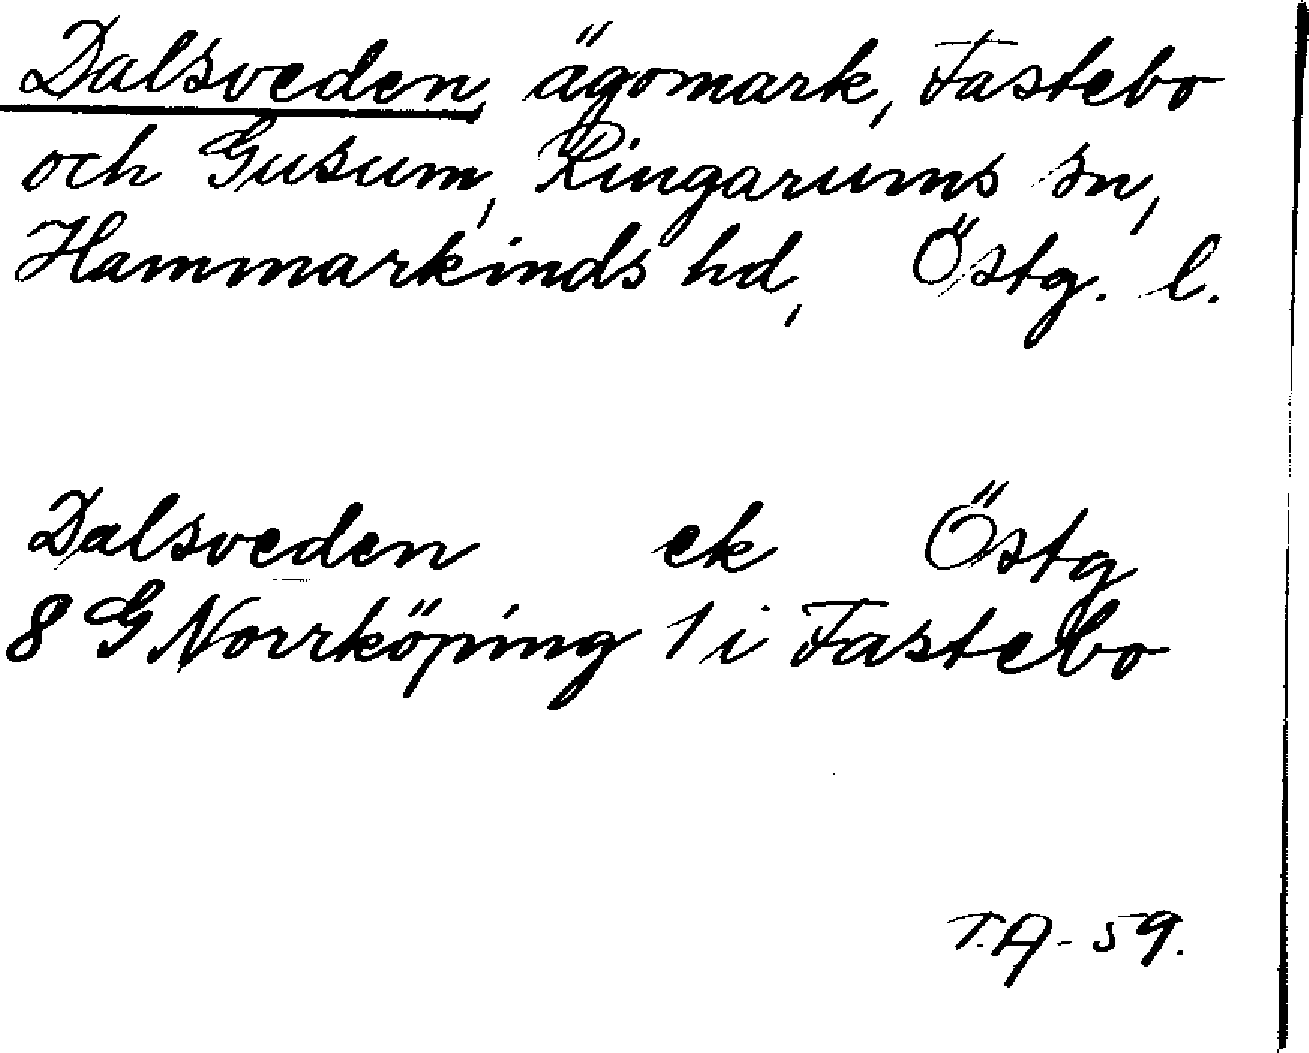 Dalsveden, ägomark, Fastebo
och Gusum, Ringarums sn,
Hammarkinds hd, Östg. l.
Dalsveden ek Östg
8 G Norrköping 1 i Fastebo
T.A-59.